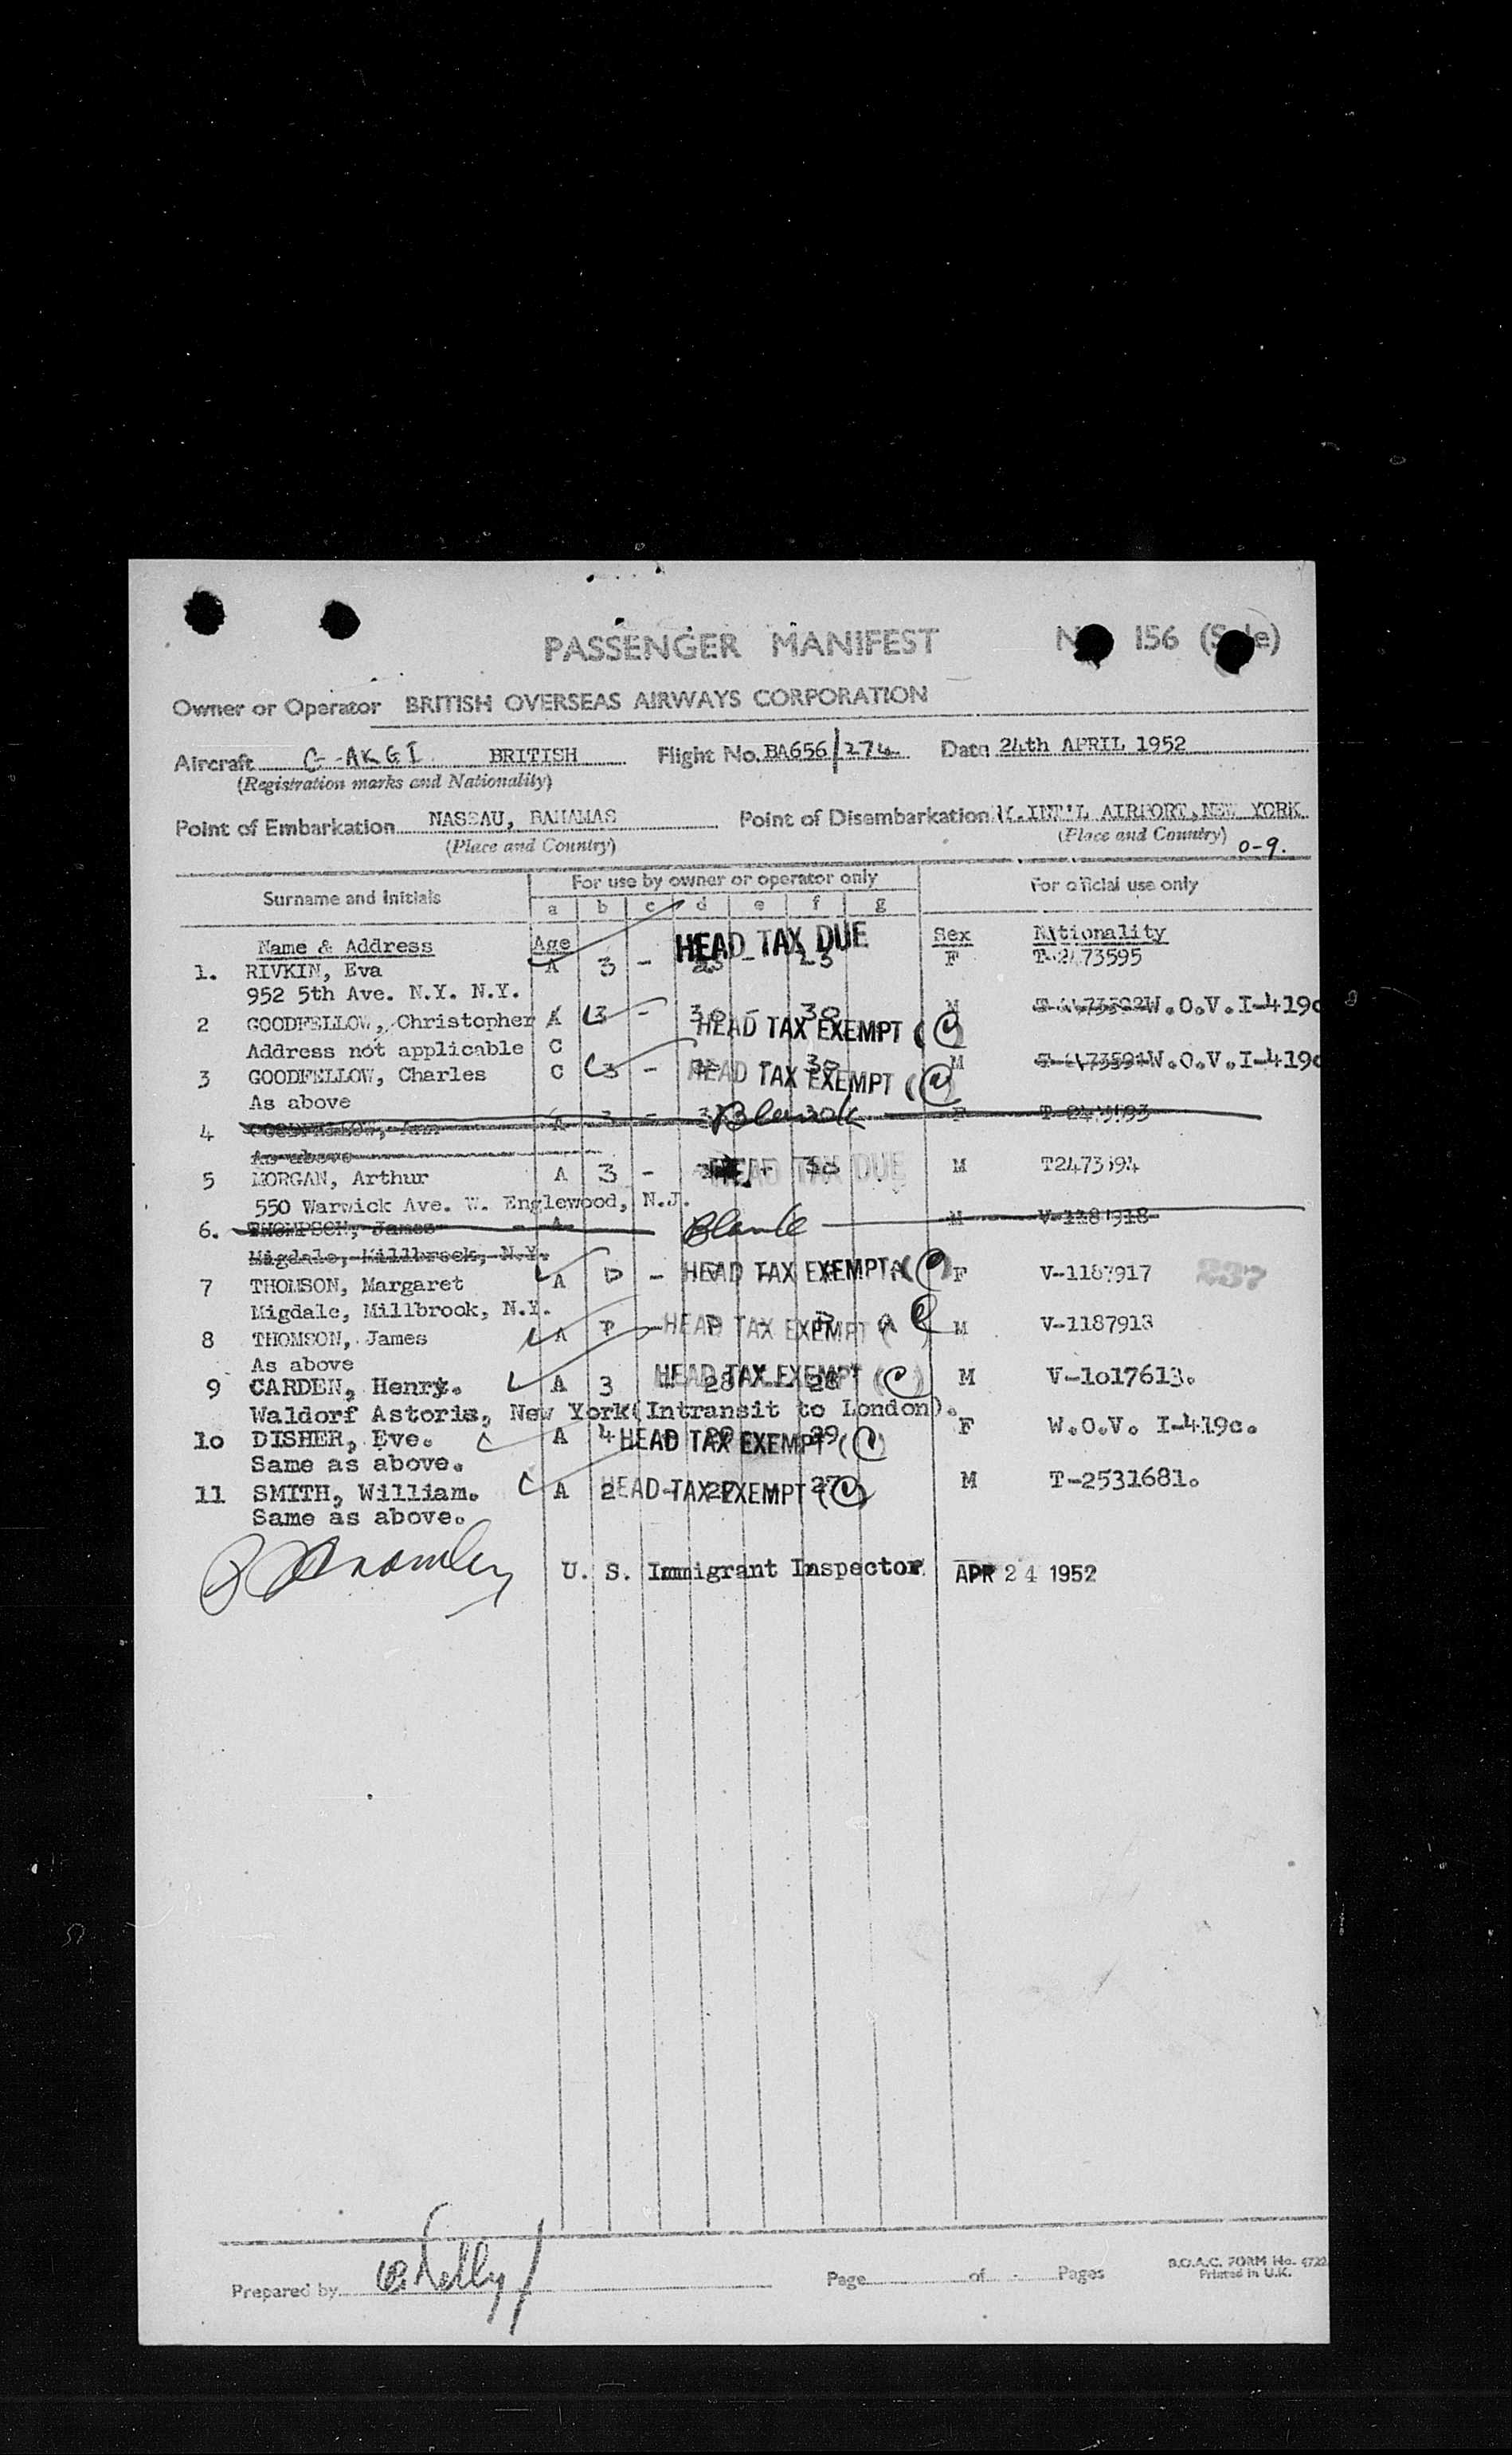 PASSENGER MANIFEST 156
Owner or Operator BRITISH OVERSEAS AIRWAYS CORPORATION
Aircraft G-AKGI BRITISH Flight No. BA656/274 Date 24th APRIL 1952
(Registration marks and Nationality)
Point of Embarkation NASSAU, BAHAMAS Point of Disembarkation INT'L AIRPORT, NEW YORK
(Place and Country) (Place and Country) 0-9.
Surname and Initials For use by owner or operator only For official use only
a b c d e f g
Name & Address Age HEAD TAX DUE Sex Nationality
1. RIVKIN, Eva A 3 - - 23 F T-2473595
952 5th Ave. N.Y. N.Y.
2 GOODFELLOW, Christopher A 3 - 30 - 30 M W.O.V.I-419c
HEAD TAX EXEMPT (C)
Address not applicable C
3 GOODFELLOW, Charles C 3 - 30 M W.O.V.I-419c
HEAD TAX EXEMPT (C)
As above
4 GOODFELLOW, Ann A 3 - Blank F
As above
5 MORGAN, Arthur A 3 - - 30 HEAD TAX DUE M T2473594
550 Warwick Ave. W. Englewood, N.J.
6. THOMPSON, James A Blank M V-1187918
Migdale, Millbrook, N.Y.
7 THOMSON, Margaret A P - HEAD TAX EXEMPT (C) F V-1187917 237
Migdale, Millbrook, N.Y.
8 THOMSON, James A P - HEAD TAX EXEMPT (C) M V-1187918
As above
9 CARDEN, Henry. A 3 28 28 HEAD TAX EXEMPT (C) M V-1017613.
Waldorf Astoria, New York(Intransit to London).
10 DISHER, Eve. A 4 29 HEAD TAX EXEMPT (C) F W.O.V. I-419c.
Same as above.
11 SMITH, William. A 2 - 27 27 HEAD TAX EXEMPT (C) M T-2531681.
Same as above.
U. S. Immigrant Inspector APR 24 1952
Prepared by Kelly Page of Pages
B.O.A.C. FORM No. 4722
Printed in U.K.